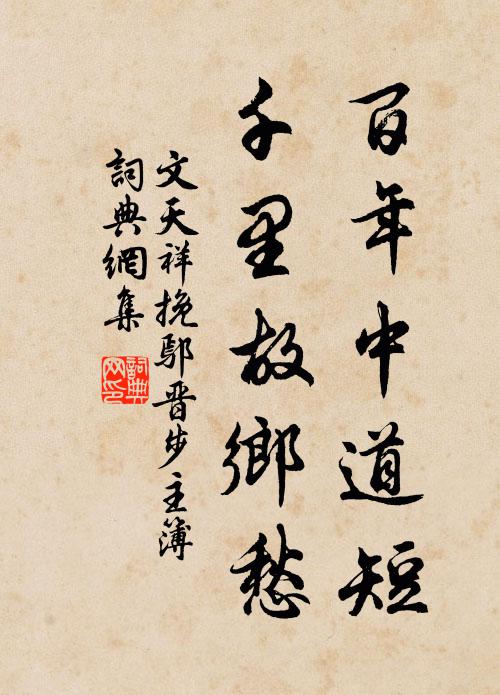 百年中道短
千里故鄉愁
文天祥挽鄢晋步主簿
詞典網集
詞典
网印